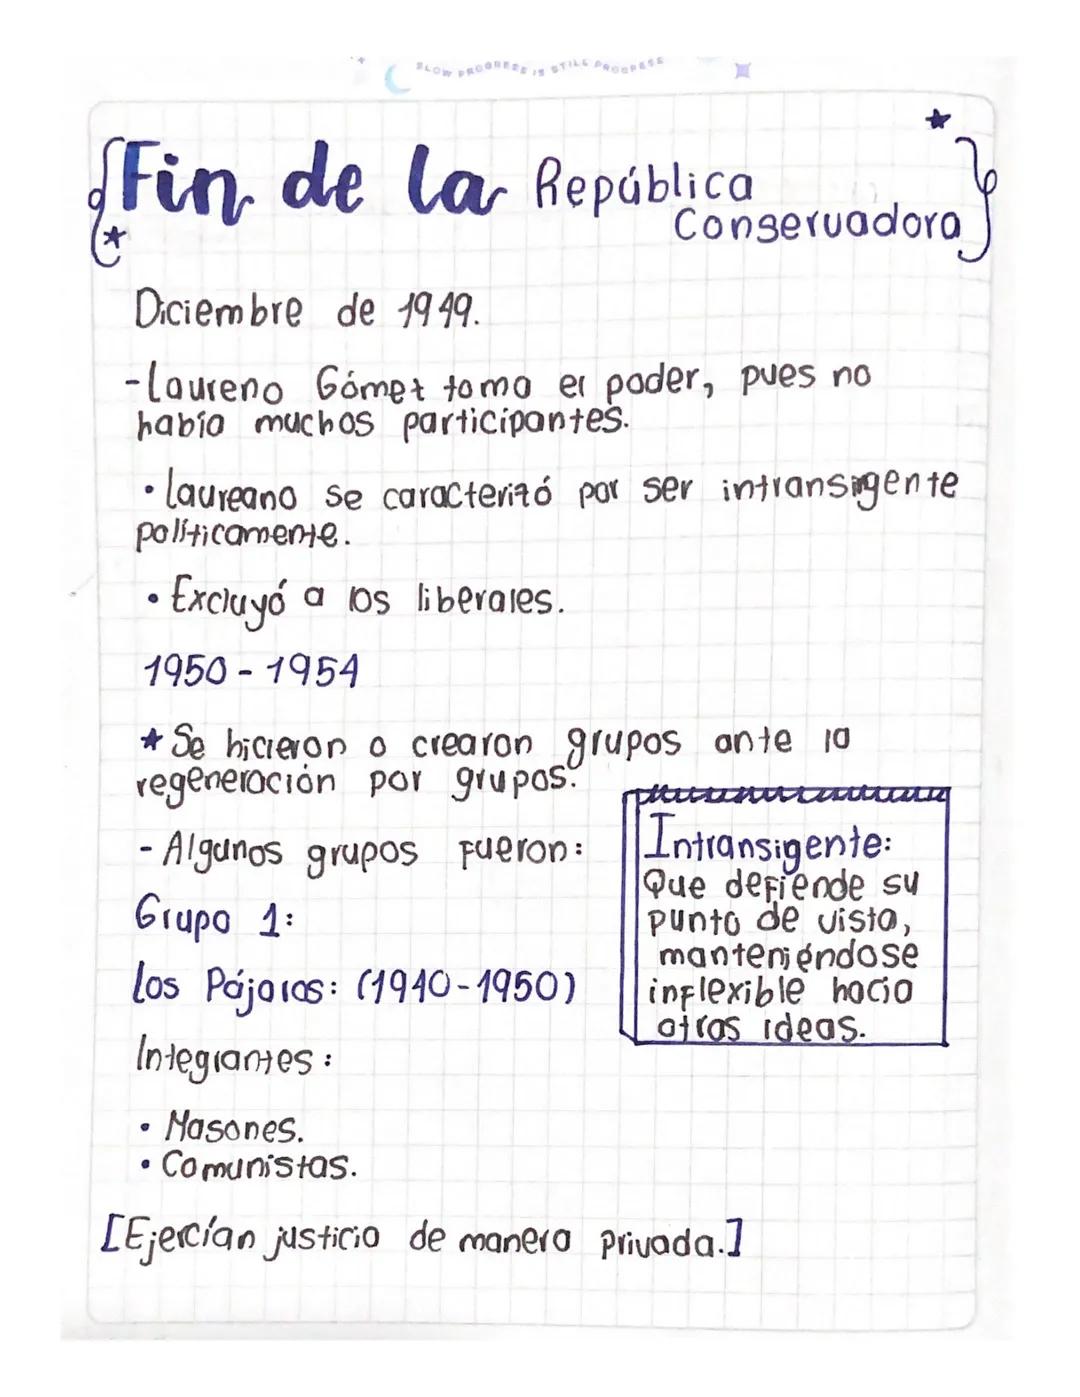 SLOW PROGRESS IS STILL PROGRESS
Fin de la República
Conservadora
Diciembre de 1949.
-Laureno Gómez toma el poder, pues no
había muchos participantes.
• Laureano se caracterizó por ser intransigente
políticamente.
• Excluyó a los liberales.
1950 - 1954
★ Se hicieron o crearon grupos ante la
regeneración por grupos.
- Algunos grupos fueron:
Grupo 1:
Los Pájaros: (1940-1950)
Integrantes:
• Masones.
• Comunistas.
[Ejercían justicia de manera privada.]
Intransigente:
Que defiende su
punto de vista,
manteniéndose
inflexible hacia
otras ideas.